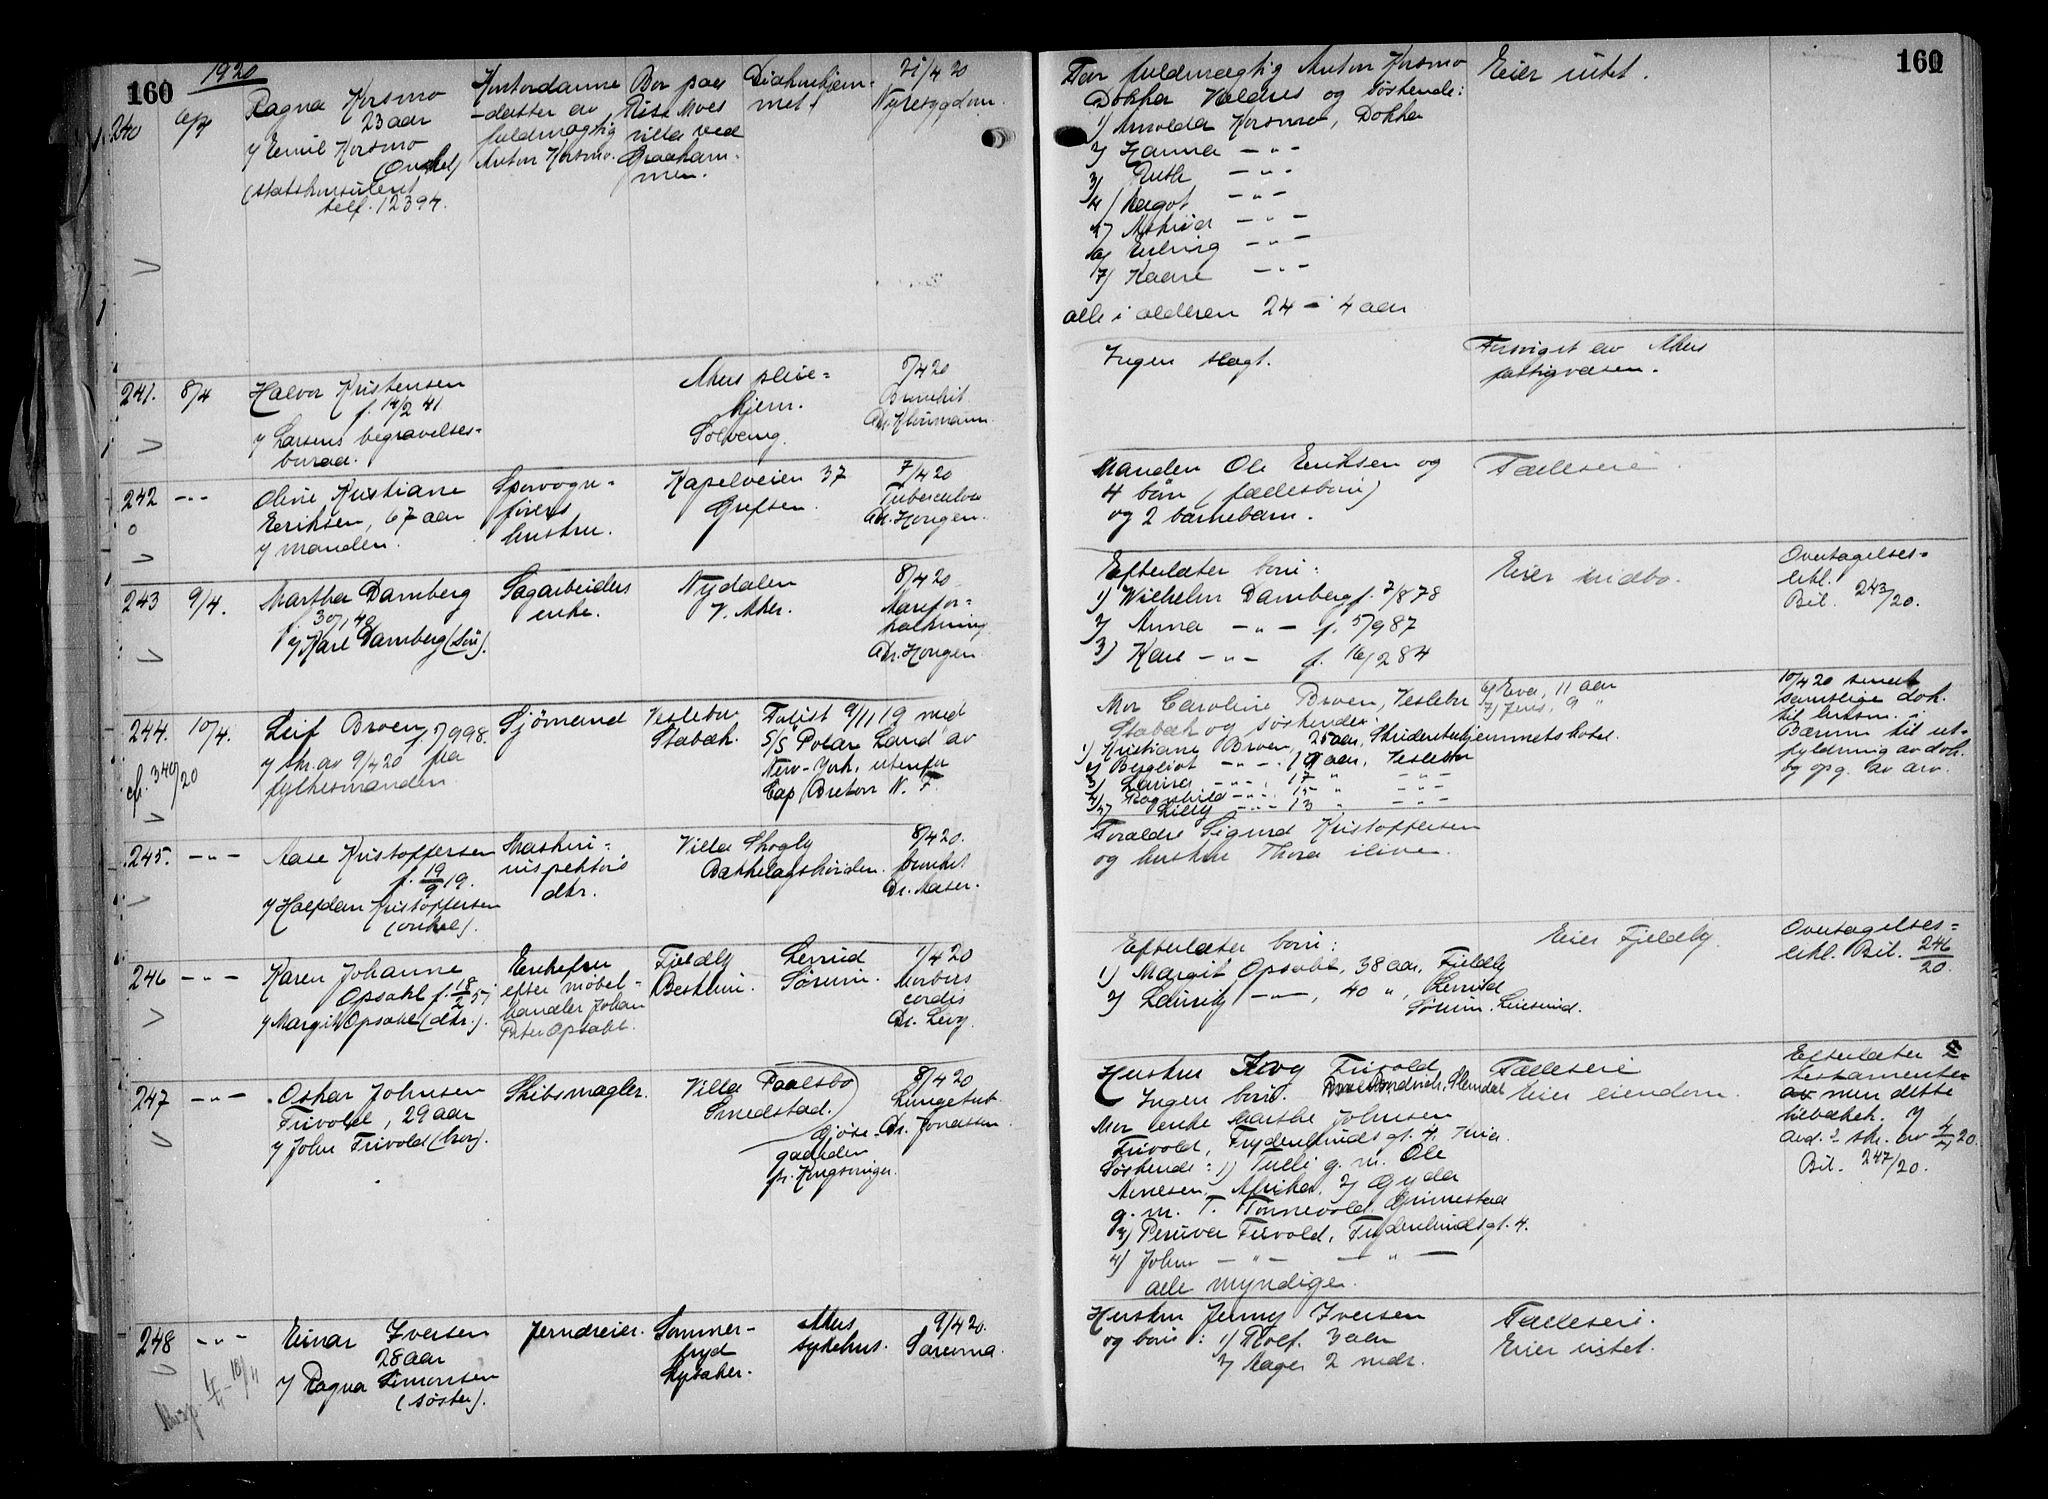 160
1920
240 6/4 Ragna Korsmo
23 aar
v/ Emil Korsmo
(Onkel)
(statskonsulent
telf. 12394.
Kontordame
-datter av
fuldmægtig
Anton Korsmo.
Bor paa
Moes
villa ved
men.
Diakonhjem-
met
21/4 20
Nyresygdom.
241. 8/4 Halvor Kristensen
f. 14/2 41
v/ Larsens begravelses-
buraa.
Akers pleie-
hjem.
Solveng.
/4 20
Bronkit
242 -"- Oline Kristiane
Eeriksen, 67 aar
v/ manden.
Sporvogn-
förers
hustru.
Kapelveien 37
Grefsen.
7/4 20
Tuberculose
Dr. Hougen.
243 9/4. Martha Damberg
30/1 48
v/ Karl Damberg (sön).
Sagarbeiders
enke.
Nydalen
V. Aker.
8/4 20
Aarefor-
kalkning
Dr. Hougen
244. 10/4. Leif Broen f. 7/9 98.
v/ skr. av 9/4 20 fra
fylkesmanden
cfr. 340/20
Sjömand
Veslebo
Stabæk.
Forlist 9/11 19 med
S/S Polar Land av
New-York, utenfor
Cap Breton N. F.
245. -"- Aase Kristoffersen
f. 19/9 19.
v/ Halfdan Kristoffersen
(onkel).
Maskin-
inspektörs
dtr.
Villa Skogly
Bækkelagshöiden.
8/4 20.
bronkit
Dr. Aaser.
246 -"- Karen Johanne
Opsahl f. 18/2 51
v/ Margit Opsahl (dtr.).
Enkefru
efter möbel-
handler Johan
Peter Opsahl.
Fjeldly
Bestum.
Lerud
Sörum.
1/4 20
Morbus
cordis
Dr. Levy.
247 -"- Oskar Johnsen
Trivold, 29 aar
v/ John Trivold (bror).
Skibsmægler.
Villa Paalsbo
Smedstad.
Gjöse-
gaarden
pr. Kongsvinger.
8/4 20
Lungetub.
Dr. Jonassen.
248 -"- Einar Iversen
28 aar
v/ Ragna Simonsen
(söster).
Jerndreier.
Sommer-
fryd
Lysaker.
Akers
sykehus.
9/4 20.
Sarcoma.
160
Far fuldmægtig Anton Korsmo
Dokka Valdres og söskende:
1) Arnolda Korsmo, Dokka
2) Hanna -"-
3) Ruth -"-
4) Magot -"-
5) Astrid -"-
6) Erling -"-
7) Kaare -"-
alle i alderen 24 - 4 aar
Eier intet.
Ingen slegt.
Forsörget av Akers
fattigvæsen.
Manden Ole Eeriksen og
4 börn (fællesbörn)
og 2 barnebarn.
Fælleseie.
Efterlater börn:
1) Wilhelm Damberg f. 7/8 78
2) Anna -"- f. 5/9 87
3) Karl -"- f. 16/2 84
Eier indbo.
Overtagelses-
erkl.
Bil. 243/20.
Mor Caroline Broen, Veslebo
Stabæk og söskende:
1) Kristiane Broen, 25 aar, Studenterhjemmets hotel.
2) Bergliot -"-, 19 aar, Veslebo
3) Laura -"-, 17 " -"-
4) Ragnhild -"-, 15 " -"-
5) Lilly -"- 13 " -"-
6) Eva, 11 aar
7) Jens, 9 "
10/4 20 sendt
samtlige dok.
til lensm. i
Bærum til ut-
fyldning av dok.
og opg. av arv.
Forældre Sigurd Kristoffersen
og hustru Thora ilive.
Efterlater börn:
1) Margit Opsahl, 38 aar, Fjeldly
2) Laurity -"-, 40 ", Lerud
Sörum.
Eier Fjeldly.
Overtagelses-
erkl. Bil. 246/20.
Hustru Trivold
Ingen börn.
Mor enke Marthe Johnsen
Trivold, Frydenlundsgt. 4. Kria.
Söskende: 1) Tulli g. m. Ole
Arnesen, Afrika. 2) Gyda
g. m. T. Tönnevold, Grimestad
3) Trivold, Frydenlundsgt. 4.
4) John -"- -"-
alle myndige.
Fælleseie
Eier eiendom.
Efterlater
testamente
av men dette
tilbakek. v/
avd. 2 skr. av 4/20.
Bil. 247/20.
Hustru Jenny Iversen
og börn: 1) Rolf. 3 aar
2) Aage 2 mdr.
Fælleseie.
Eier intet.